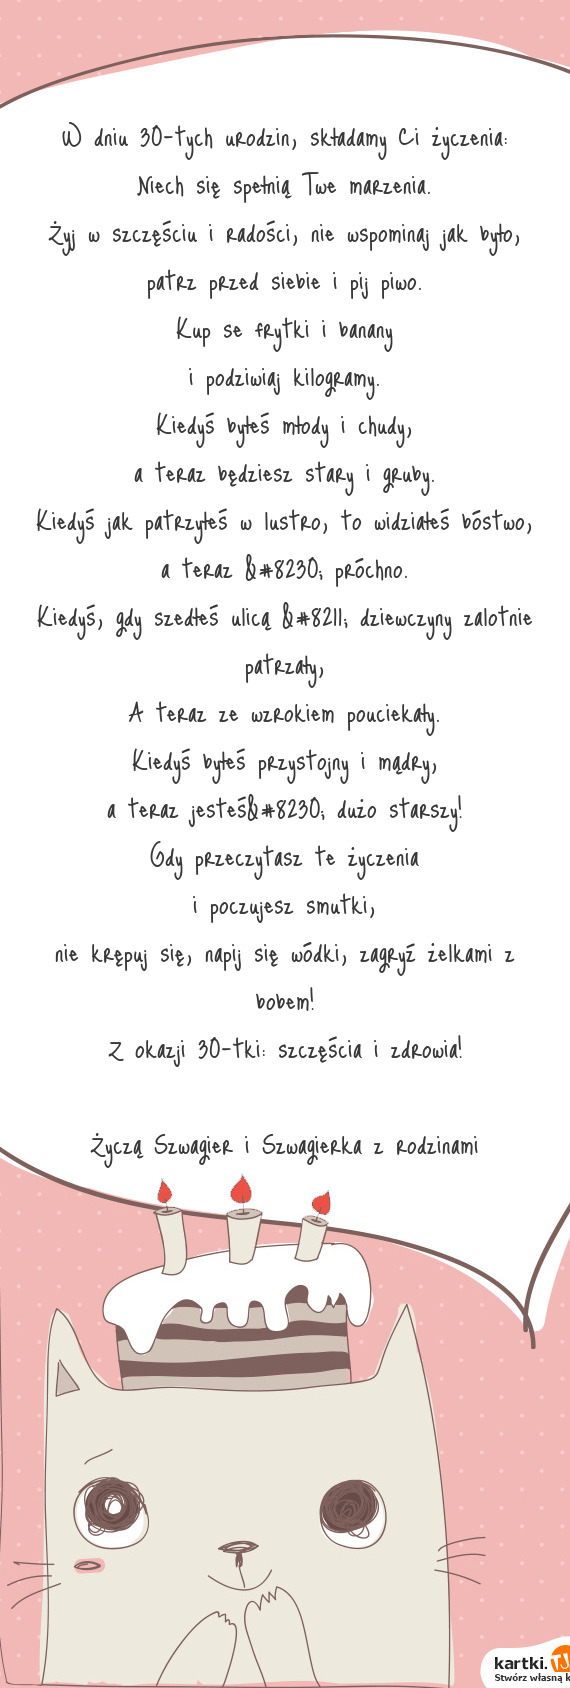 W dniu 30-tych urodzin, składamy Ci życzenia:
Niech się spełnią Twe marzenia.
Żyj w szczęściu i radości, nie wspominaj jak było,
patrz przed siebie i pij piwo.
Kup se frytki i banany
i podziwiaj kilogramy.
Kiedyś byłeś młody i chudy,
a teraz będziesz stary i gruby.
Kiedyś jak patrzyłeś w lustro, to widziałeś bóstwo,
a teraz &#8230; próchno.
Kiedyś, gdy szedłeś ulicą &#8211; dziewczyny zalotnie
patrzały,
A teraz ze wzrokiem pouciekały.
Kiedyś byłeś przystojny i mądry,
a teraz jesteś&#8230; dużo starszy!
Gdy przeczytasz te życzenia
i poczujesz smutki,
nie krępuj się, napij się wódki, zagryź żelkami z
bobem!
Z okazji 30-tki: szczęścia i zdrowia!
Życzą Szwagier i Szwagierka z rodzinami
kartki.TJ
Stwórz własną k